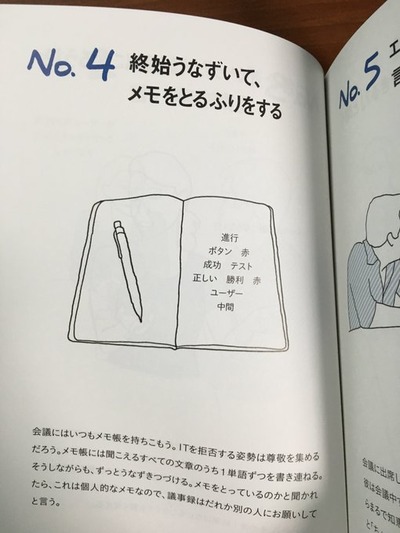 No. 4 終始うなずいて、
メモをとるふりをする
進行
ボタン 赤
成功 テスト
正しい 勝利 赤
ユーザー
中間
会議にはいつもメモ帳を持ちこもう。ITを拒否する姿勢は尊敬を集める
だろう。メモ帳には聞こえるすべての文章のうち1単語ずつを書き連ねる。
そうしながらも、ずっとうなずきつづける。メモをとっているのかと聞かれ
たら、これは個人的なメモなので、議事録はだれか別の人にお願いして
と言う。
No. 5 エ
言
会議に出席し
彼は会議中